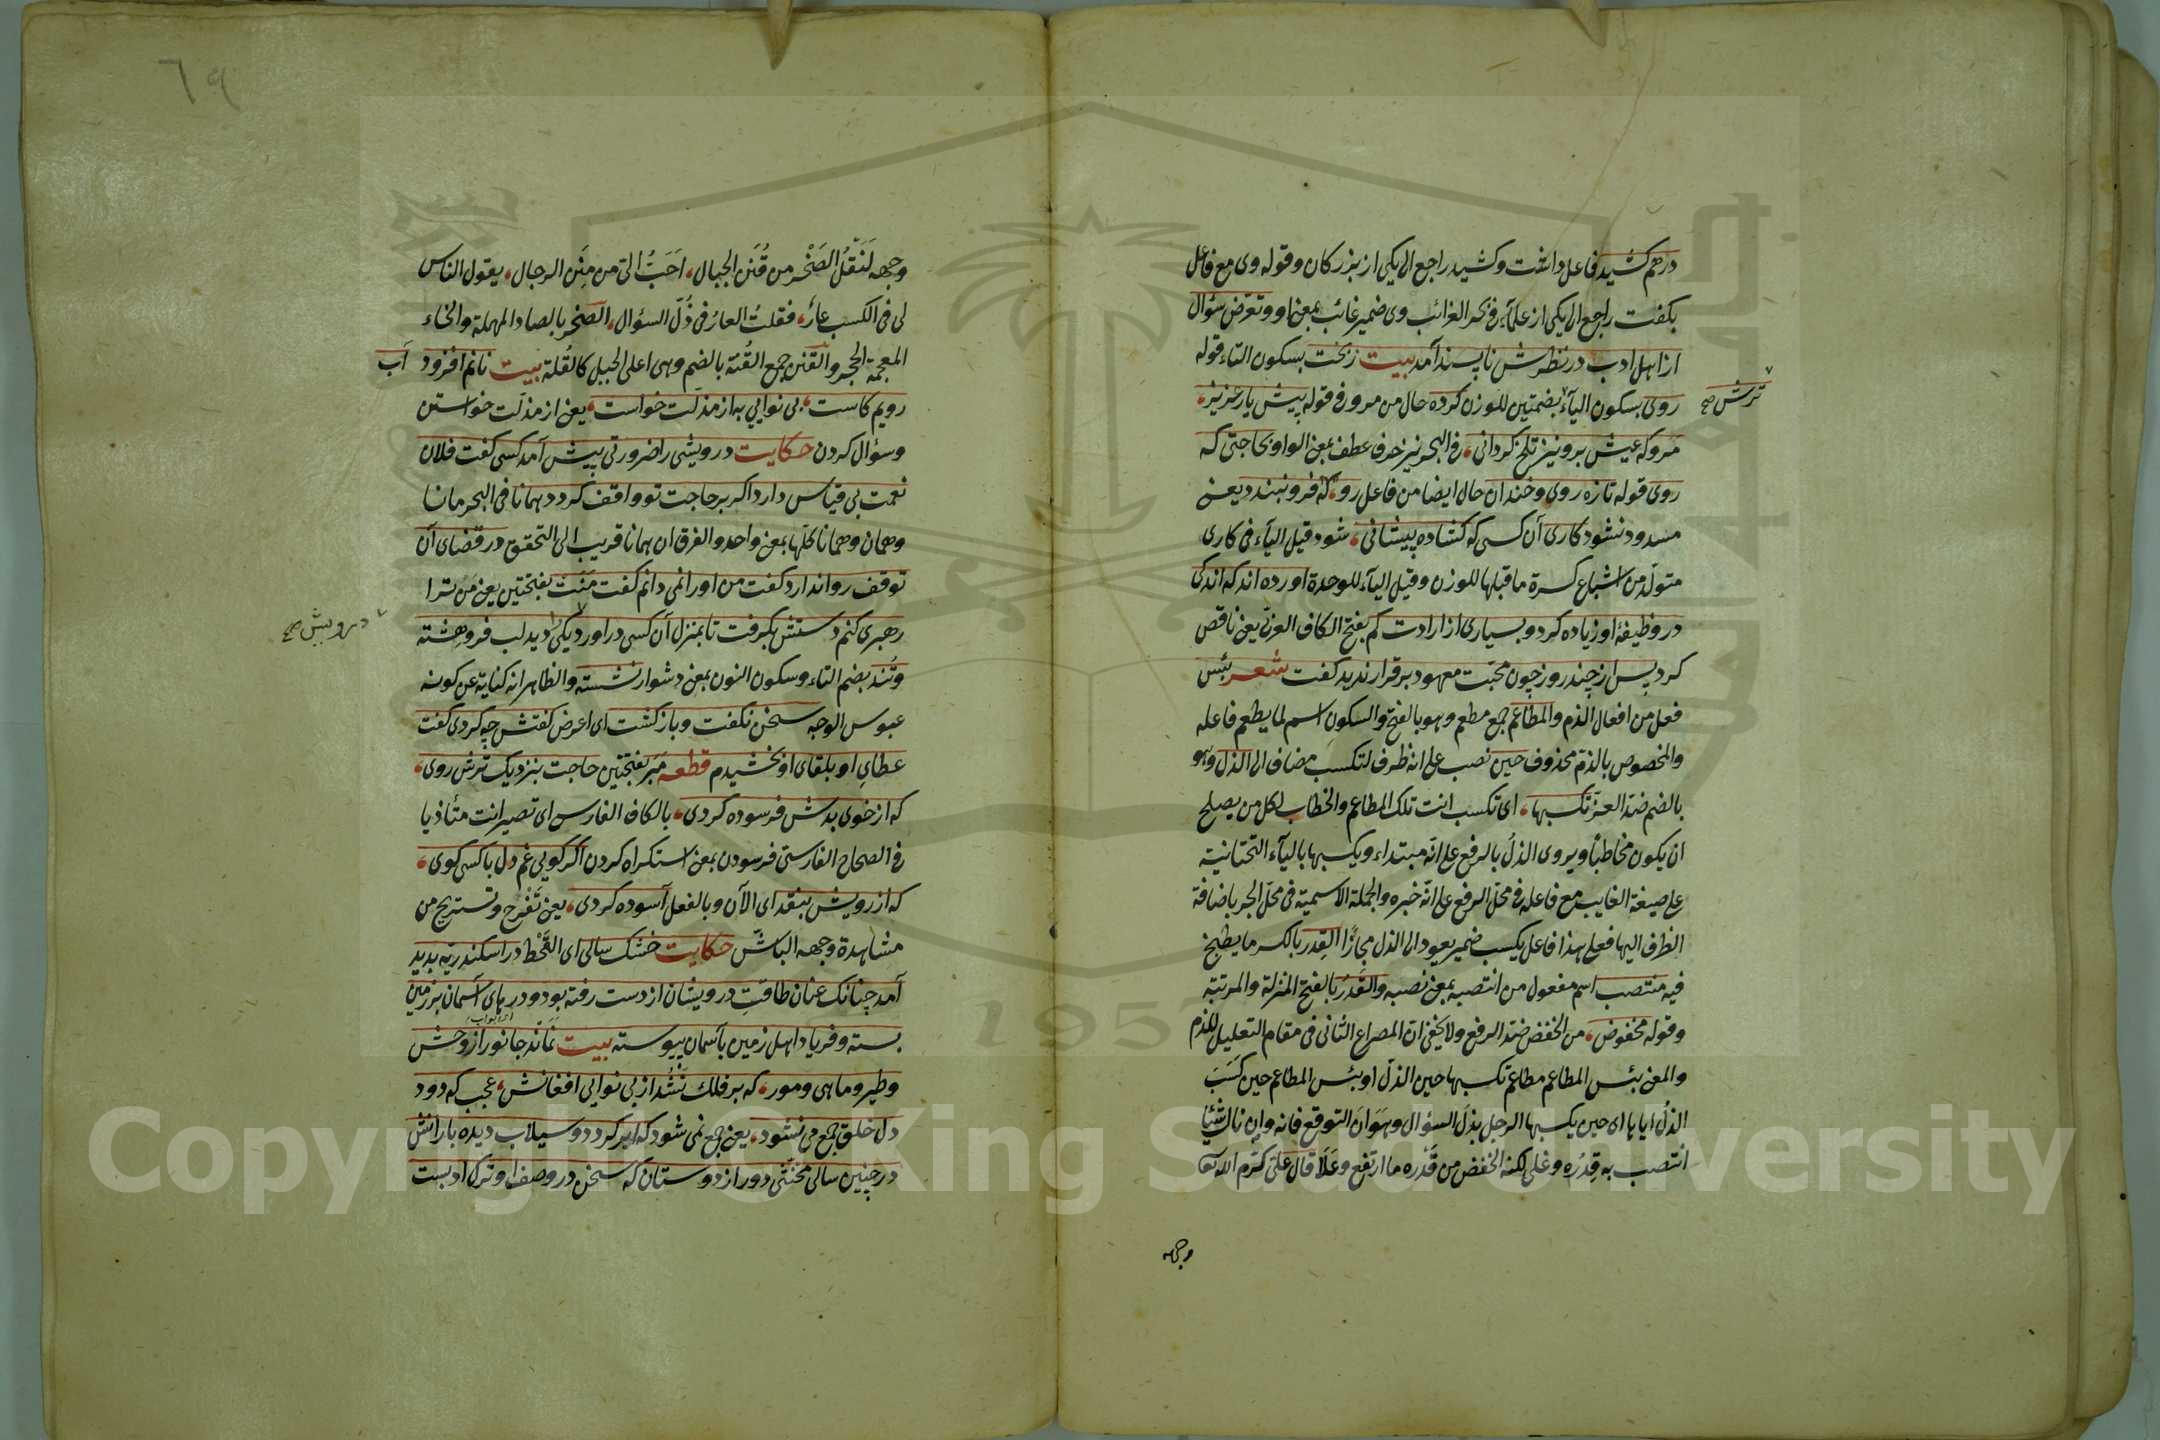 درهم كشيد فاعل داشت وكشيد راجع الى يكى از بزركان وقوله وى مع فاعل
بكفت راجع الى يكى از علمآء فى بحر الغرائب وى ضمير غائب بمعنى او وتعرّض سؤال
از اهل ادب در نظرش ناپسند آمد بيت ز بخت بسكون التاء قوله
ترش صح
روى بسكون اليآء بضمتين للوزن كرده حال من مرو فى قوله پيش يار عزيز
مرو كه عيش برو نيز تلخ كردانى فى البحر نيز حرف عطف بمعنى الواو بحاجتى كه
روى قوله تازه روى وخندان حال ايضا من فاعل رو كه فرو نبندد يعنى
مسدود نشود كارى آن كسى كه كشاده پيشانى شود قيل اليآء فى كارى
متولّد من اشباع كسرة ما قبلها للوزن وقيل اليآء للوحدة اورده اند كه اندكى
در وظيفۀ او زياده كرد و بسيارى از ارادت كم بفتح الكاف العربى يعنى ناقص
كرد پس از چند روز چون محبّت معهود بر قرار نديد كفت شعر بئس
فعل من افعال الذم والمطاعم جمع مطعم وهو بالفتح والسكون اسم لما يطعم فاعله
والمخصوص بالذمّ محذوف حين نصب على انه ظرف لتكسب مضاف الى الذل وهو
بالضم ضدّ العزّ تكسبها اى تكسب انت تلك المطاعم والخطاب لكل من يصلح
ان يكون مخاطباً ويروى الذلُ بالرفع على انّه مبتداء ويكسبها باليآء التحتانيّة
على صيغة الغايب مع فاعله فى محلّ الرفع على انّه خبره والجملة الاسميّة فى محلّ الجر باضافة
الظرف اليها فعلى هذا فاعل يكسب ضمير يعود الى الذل مجازًا القدر بالكسر ما يطبخ
فيه منتصب اسم مفعول من انتصبه بمعنى نصبه والقَدرُ بالفتح المنزلة والمرتبة
وقوله مخفوض من الخفض ضدّ الرفع ولا يخفى انّ المصراع الثّانى فى مقام التعليل للذم
والمعنى بئس المطاعم مطاعم تكسبها حين الذلّ او بئس المطاعم حين كسَبَ
الذلُ اياها اى حين يكسبها الرجل بذلّ السؤال وهَوَان التوقع فانه وان نال شيئا
انتصب به قِدرُه وغلى لكنه انخفض من قَدْره ما ارتفع وعَلَا قال علىّ كرّم الله تعا
وجهه
وجهه لَنَقْلُ الصَخْر من قُنَن الجبال احَبُّ الىّ من مِنَن الرجال يقول الناس
لى فى الكسب عارٌ فقلتُ العارُ فى ذُلّ السؤال الصخر بالصاد المهملة والخاء
المعجمة الحجر والقنن جمع القُنة بالضم وهى اعلى الجبل كالقُلة بيت نانم افزود آب
رويم كاست بى نوايى به از مذلت خواست يعنى از مذلّت خواستن
وسؤال كردن حكايت درويشى را ضرورتى پيش آمد كسى كفت فلان
نعمت بى قياس دارد اكر بر حاجت تو واقف كردد همانا فى البحر مانا
وهمان وهمانا كلّها بمعنى واحد والفرق ان همانا قريب الى التحقق در قضاى آن
توقف روا ندارد كفت من او را نمى دانم كفت مَنَت بفتحتين يعنى من ترا
رهبرى كنم دستش بكرفت تا بمنزل آن كسى در آورد يكى ديد لب فرو هشته
درويش صح
وتُند بضم التاء وسكون النون بمعنى دشوار نشسته والظاهر انه كناية عن كونه
عبوس الوجه سخن نكفت وباز كشت اى اعرض كفتش چه كردى كفت
عطاى او بلقاى او بخشيدم قطعه مَبَر بفتحتين حاجت بنزديك ترش روى
كه از خوى بدش فرسوده كردى بالكاف الفارسى اى تصير انت متأذيا
فى الصحاح الفارستى فرسودن بمعنى استكراه كردن اكر كويى غم دل با كسى كوى
كه از رويش بنقد اى الآن وبالفعل آسوده كردى يعنى تَفْرح وتستريح من
مشاهدة وجهه الباشّ حكايت خشك سالى اى القَحْط در اسكندريّه بديد
آمد چنانك عنان طاقتِ درويشان از دست رفته بود و درهاى آسمان بر زمين
بسته وفرياد اهل زمين بآسمان پيوسته بيت نَماند جانور از وحش
وطير وماهى ومور كه بر فلك نَشُد از بى نوايى افغانش عجب كه دود
دل خلق جمع مى نشود يعنى جمع نمى شود كه ابر كردد وسيلاب ديده بارانش
در چنين سالى مخنّثى دور از دوستان كه سخن در وصف او ترك ادبست
Copyright © King Saud University
1957